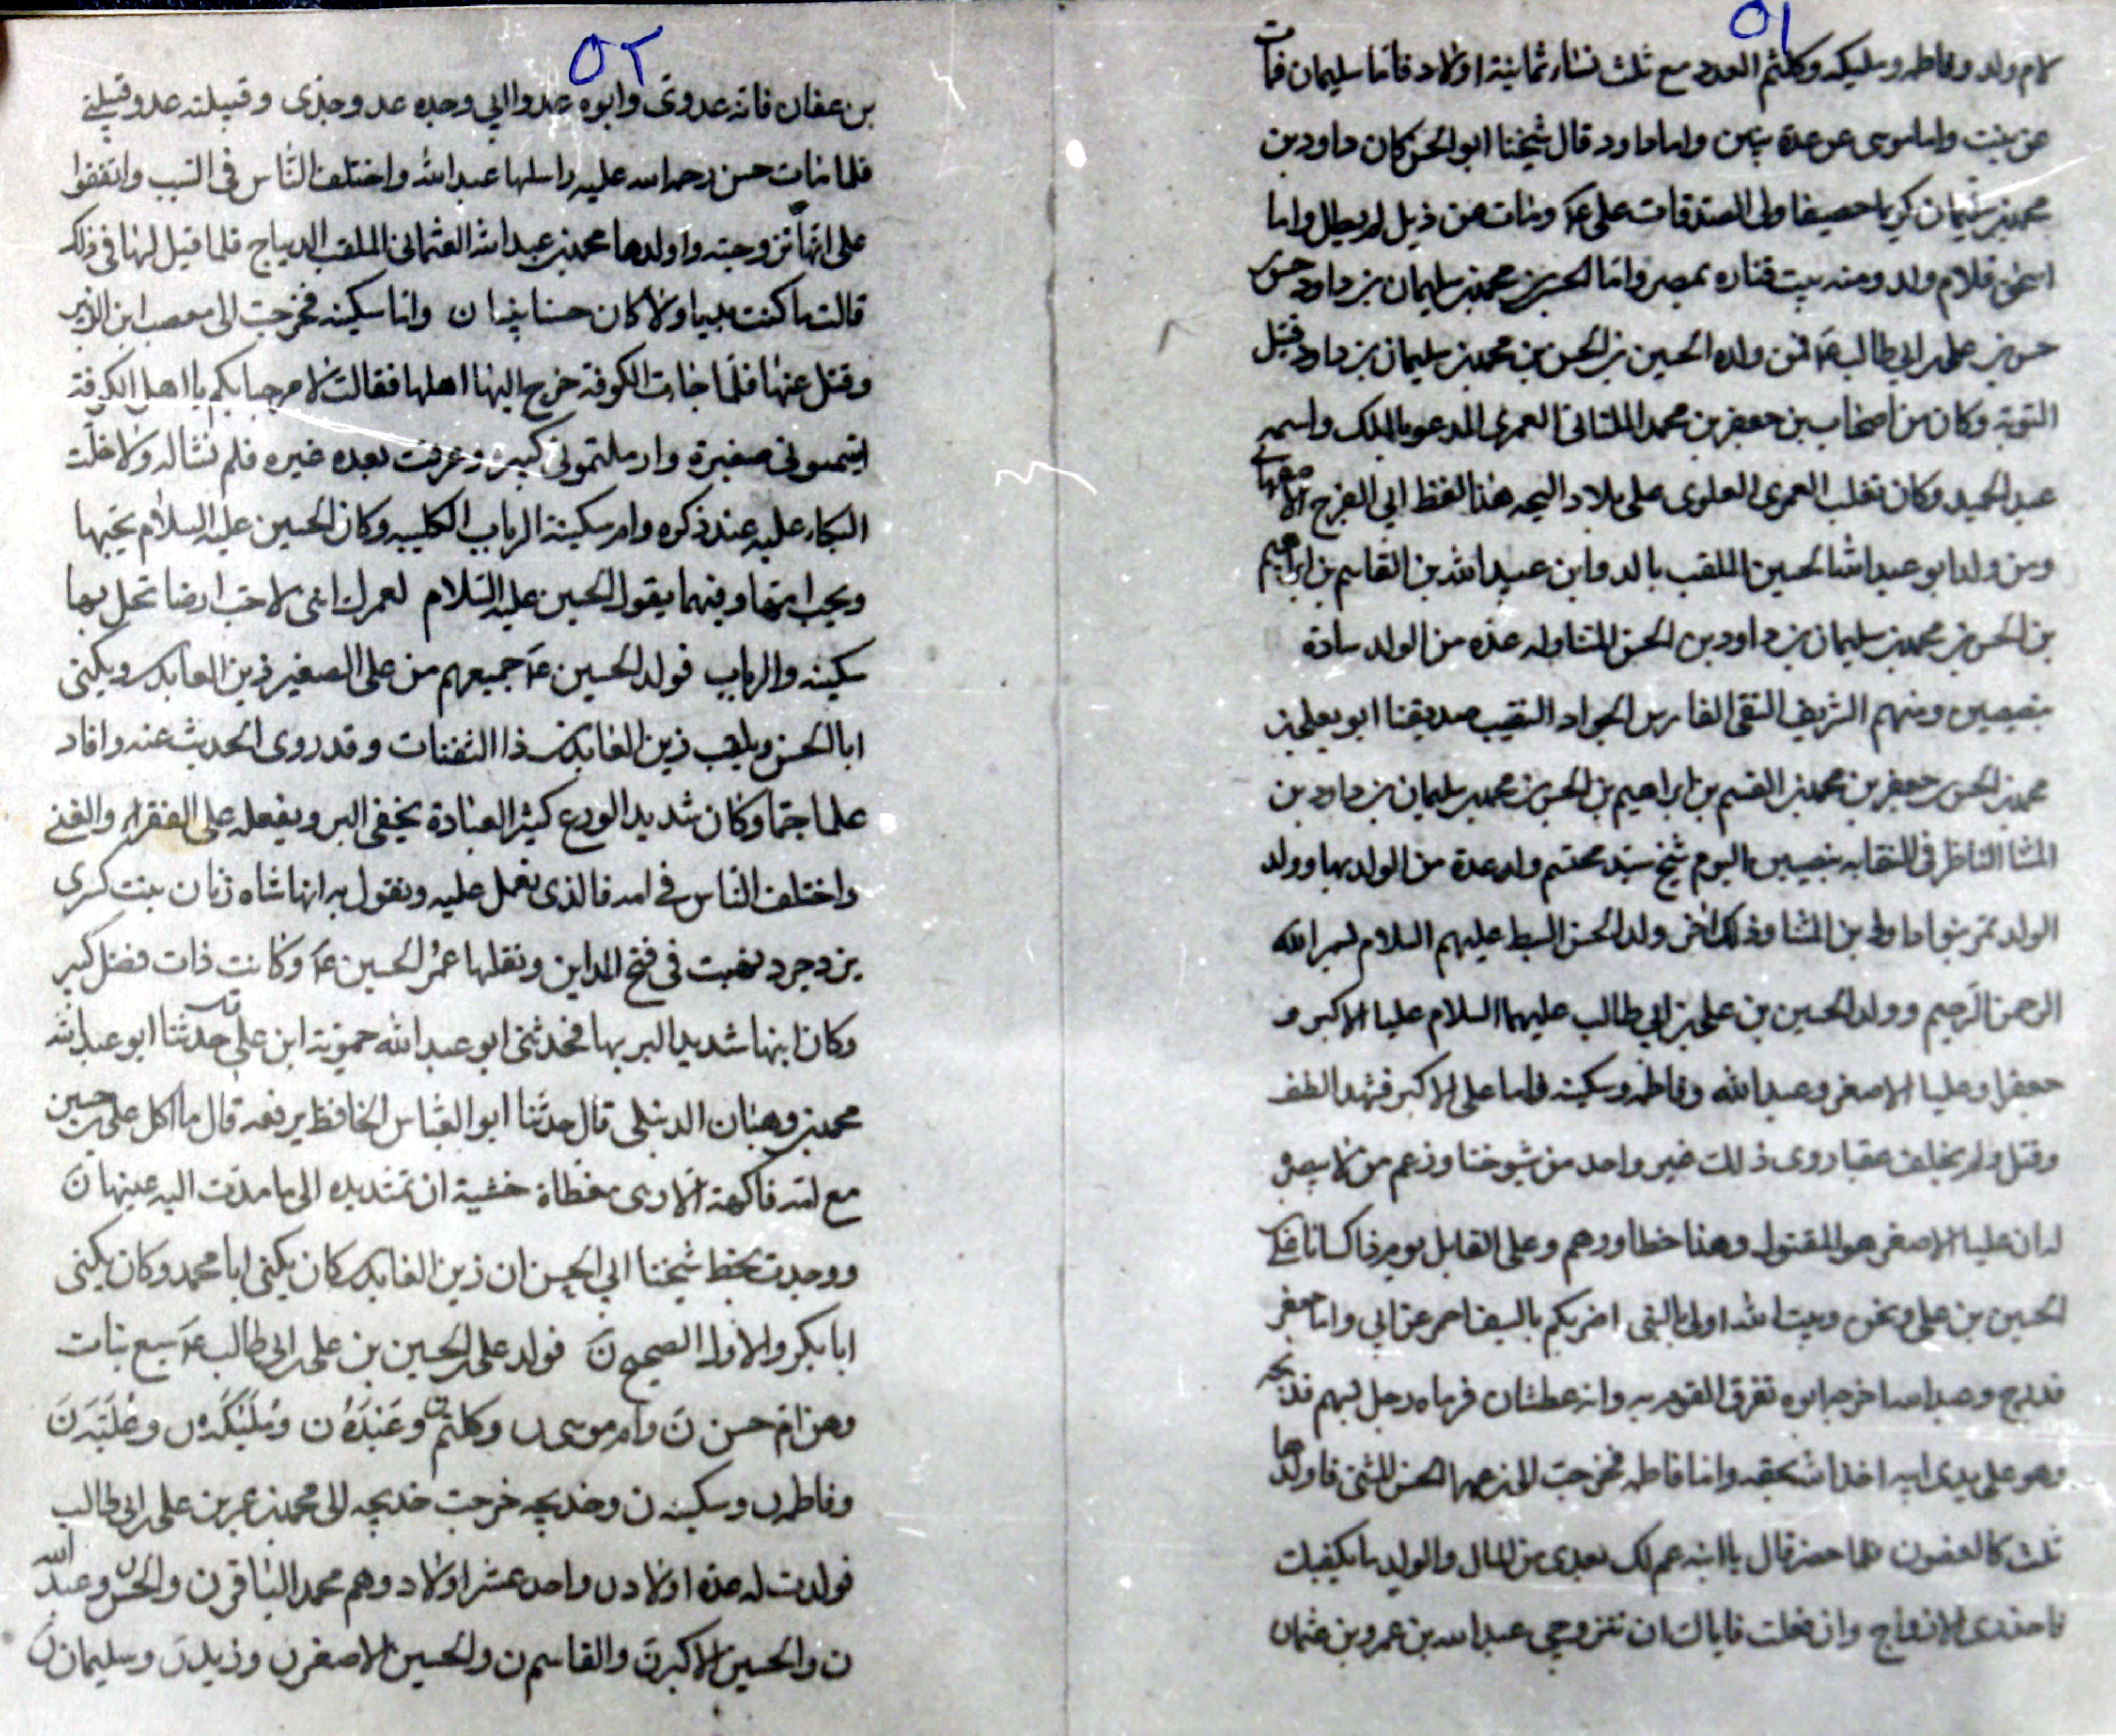 ٥١
لام ولد وفاطمه ومليكه وكلثم العدد مع ثلث نساء ثمانية اولاد فاما سليمان فمات
عن بنت واما موسى عن عدة بنين واما داود قال شيخنا ابو الحسن كان داود بن
محمد بن سليمان كريما حصيفا ولى الصدقات على عهد ومات عن ذيل لم يطل واما
اسحق فلام ولد ومنه بيت قتاره بمصر واما الحسن بن محمد بن سليمان بن داود بن حسن
حسن بن على بن ابي طالب عم فمن ولده الحسين بن الحسن بن محمد بن سليمان بن داود قتيل
النوبة وكان من اصحاب بن جعفر بن محمد الملتانى العمرى المدعو بالملك واسمه
عبد الحميد وكان تغلب العمرى العلوى على بلاد البجه هذا لفظ ابي الفرج الاصفهانى
ومن ولد ابو عبد الله الحسين الملقب بالد وابن عبيد الله بن القاسم بن ابراهيم
بن الحسن بن محمد بن سليمان بن داود بن الحسن المثنا وله عدة من الولد سادة
بنصيبين ومنهم الشريف التقى الفارس الجواد النقيب صديقنا ابو يعلى بن
محمد بن الحسن بن جعفر بن محمد بن القسم بن ابراهيم بن الحسن بن محمد بن سليمان بن داود بن
المثنا الناظر فى النقابه بنصيبين اليوم شيخ سيد محتشم وله عدة من الولد بها وولد
الولد تمر بنو داود بن المثنا وذلك اخر ولد الحسن السبط عليهم السلام بسم الله
الرحمن الرحيم وولد الحسين بن على بن ابي طالب عليهما السلام عليا الاكبر و
جعفرا وعليا الاصغر وعبد الله وفاطمه وسكينه فاما على الاكبر فشهد الطف
وقتل ولم يخلف عقبا روى ذلك غير واحد من شيوخنا وزعم من لا بصيرة
له ان عليا الاصغر هو المقتول وهذا خطا ووهم وعلى القايل يوم
الحسين بن على ونحن وبيت الله اولى بالنبى اضربكم بالسيف احمى عن ابي واما جعفر
فدرج وعبد الله اخرجه ابوه تفرق القوم به وانه عطشان فرماه رجل بسهم فذبحه
وهو على يدى ابيه اخذا شكعبه واما فاطمه فخرجت الى بن عمها الحسن المثنى فاولدها
ثلث كالغصون فلما حضر قال يا ابنه عم لك بعدى من المال والولد ما يكفيك
فاحذرى الازواج وان فعلت فاياك ان تتزوجى عبد الله بن عمرو بن عثمان
٥٢
بن عفان فانه عدوى وابوه عدوا ابي وجده عدو جدى وقبيلته عدو قبيلتى
فلما مات حسن رحمه الله عليه راسلها عبد الله واختلف الناس فى السبب واتفقوا
على انها تزوجته واولدها محمد بن عبد الله العثمانى الملقب الديباج فلما قيل لها فى ذلك
قالت ما كنت نبيا ولا كان حسنا نبيا ن واما سكينه فخرجت الى مصعب ابن الزبير
وقتل عنها فلما جات الكوفة خرج اليها اهلها فقالت لا مرحبا بكم يا اهل الكوفة
ايتمتمونى صغيرة وارملتمونى كبيرة وعرفت بعده غيره فلم تساله ولا خلت
البكاء عليه عند ذكره وام سكينة الرباب الكلبيه وكان الحسين عليه السلام يحبها
ويحب امها وفيهما يقول الحسين عليه السلام لعمرك اننى لاحب ارضا تحل بها
سكينه والرباب فولد الحسين عم جميعهم من على الصغير زين العابدين ويكنى
ابا الحسن ويلقب زين العابدين ذا الثفنات وقد روى الحديث عنه وافاد
علما جما وكان شديد الورع كثير العبادة يخفى البر ويفعله على الفقراء والغنى
واختلف الناس فى امه فالذى نعمل عليه ونقول به انها شاه زنان بنت كسرى
يزدجرد نهبت فى فتح المداين ونفلها عمر الحسين عم وكانت ذات فضل كبير
وكان ابنها شديد البر بها فحدثنى ابو عبد الله حموية ابن على حدثنا ابو عبد الله
محمد بن وهبان الدنبلى قال حدثنا ابو العباس الحافظ يرفعه قال ما اكل على بن حسين
مع امه فاكهة الا وهى مغطاة خشية ان تمتد يده الى ما مدت اليه عينها ن
ووجدت بخط شيخنا ابي الحسن ان زين العابدين كان يكنى ابا محمد وكان يكنى
ابا بكر والاول الصحيح ن فولد على بن الحسين بن على بن ابي طالب عم سبع بنات
وهن ام حسن ن وام موسى ن وكلثم ن وعبدة ن ومليكه ن وعليه ن
وفاطمه ن وسكينه ن وخديجه خرجت خديجه الى محمد بن عمر بن على بن ابي طالب
فولدت له عدة اولاد ن واحد عشر اولاد وهم محمد الباقر ن والحسن ن وعبد الله
ن والحسين الاكبر ن والقاسم ن والحسين الاصغر ن وزيد ن وسليمان ن